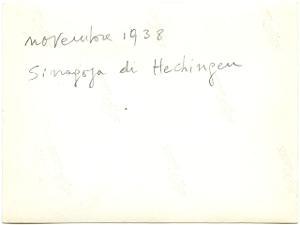 novembre 1938
Sinagoga di Hechingen